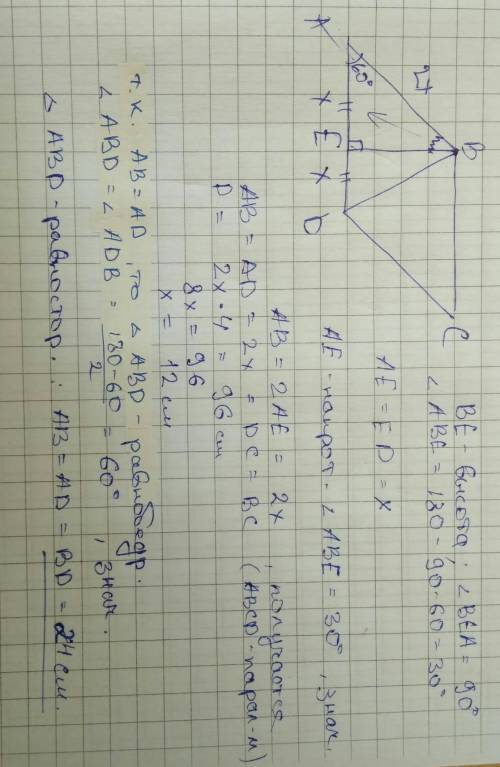 A
60°
B
C
D
E
x
x
24
BE - высота; ∠BEA = 90°
∠ABE = 180 - 90 - 60 = 30°
AE = ED = x
AE - напрот. ∠ABE = 30°, знач.
AB = 2AE = 2x, получается
AB = AD = 2x = DC = BC (ABCD - парал-м)
P = 2x·4 = 96 см
8x = 96
x = 12 см
т.к. AB = AD, то △ABD - равнобедр.
∠ABD = ∠ADB = 180-60/2 = 60°, знач.
△ABD - равностор.: AB = AD = BD = 24 см.